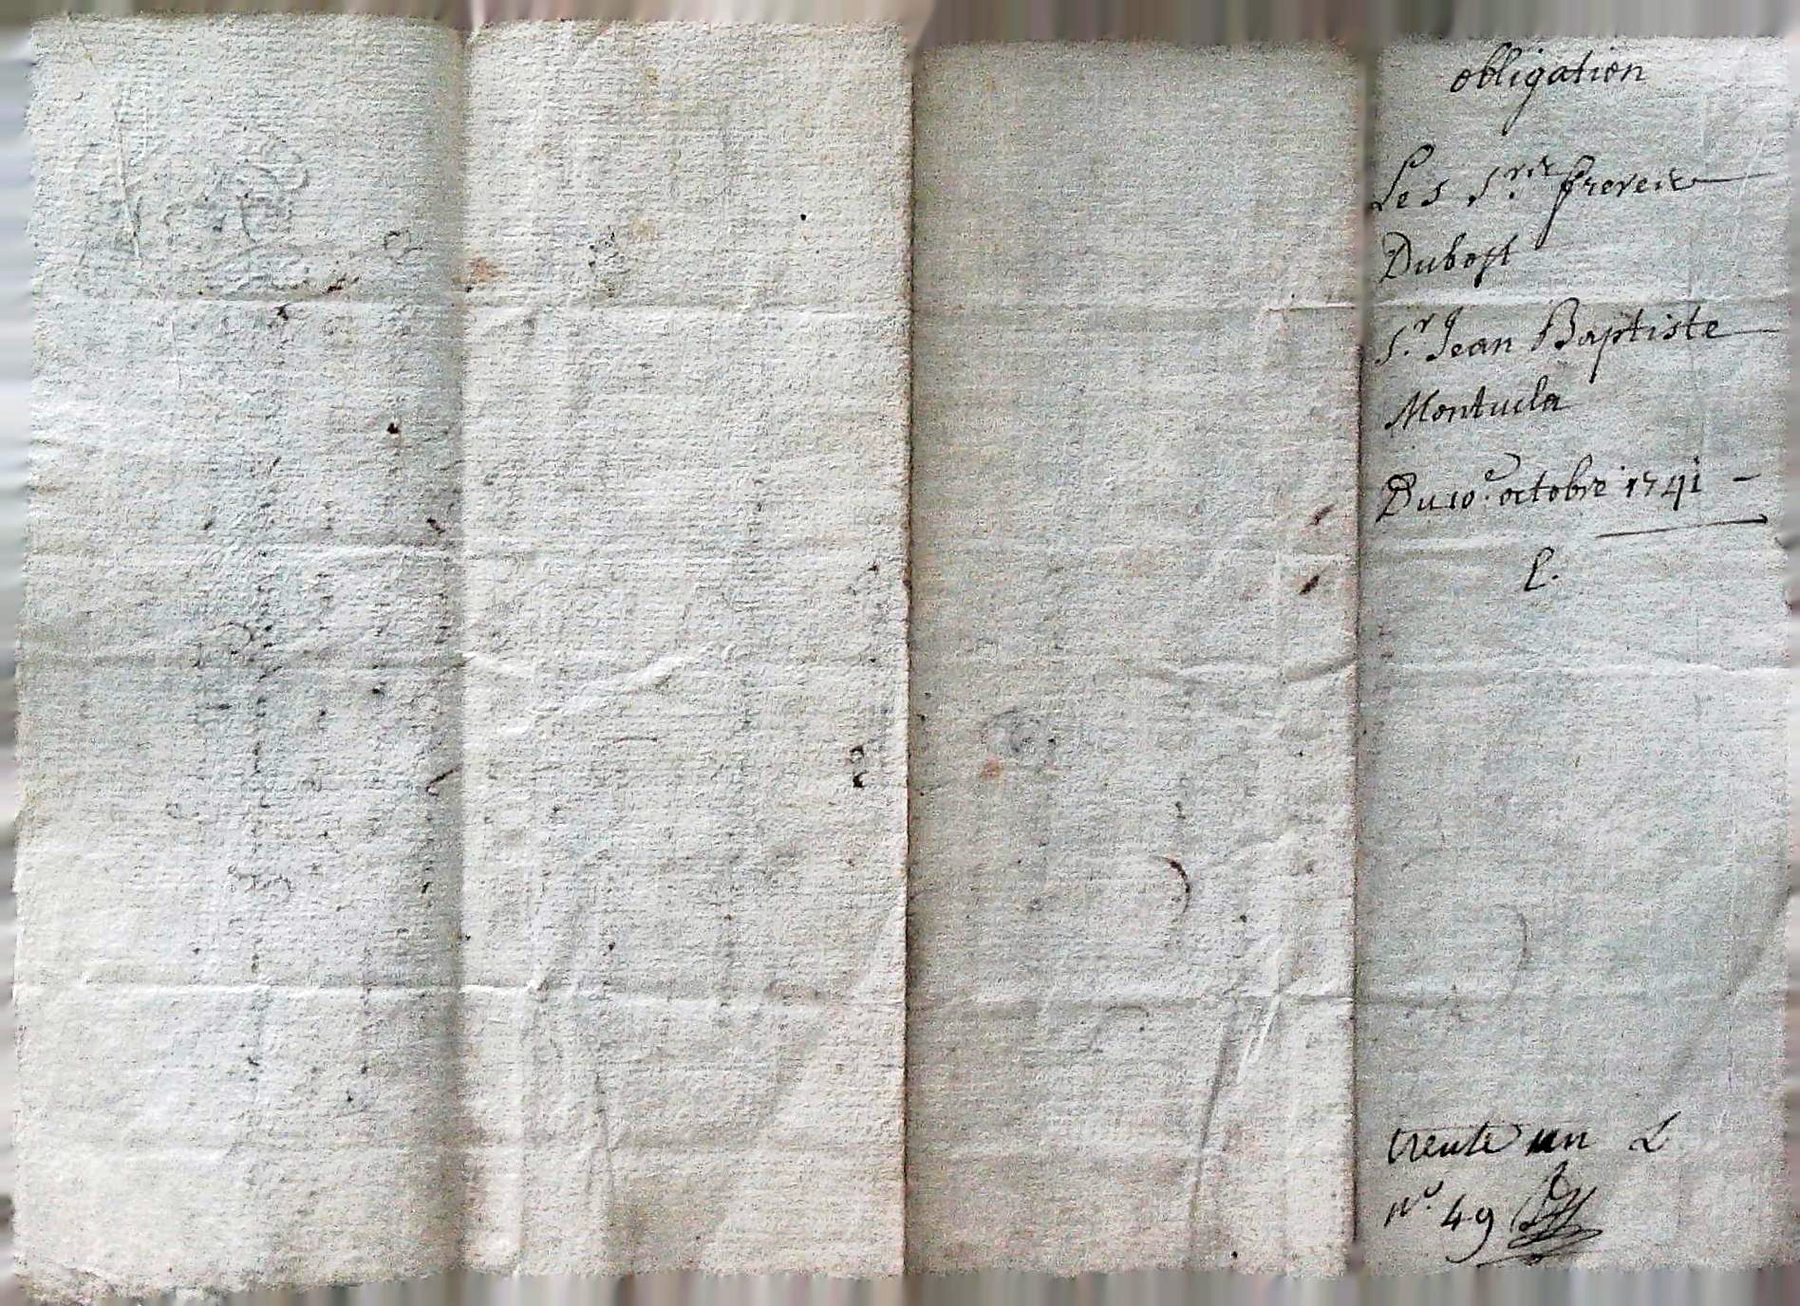 obligation
Les S.rs frereis
Dubost
S.r Jean Baptiste
Montucla
Du 10.e octobre 1741 -
L.
trente un L
N.o 49